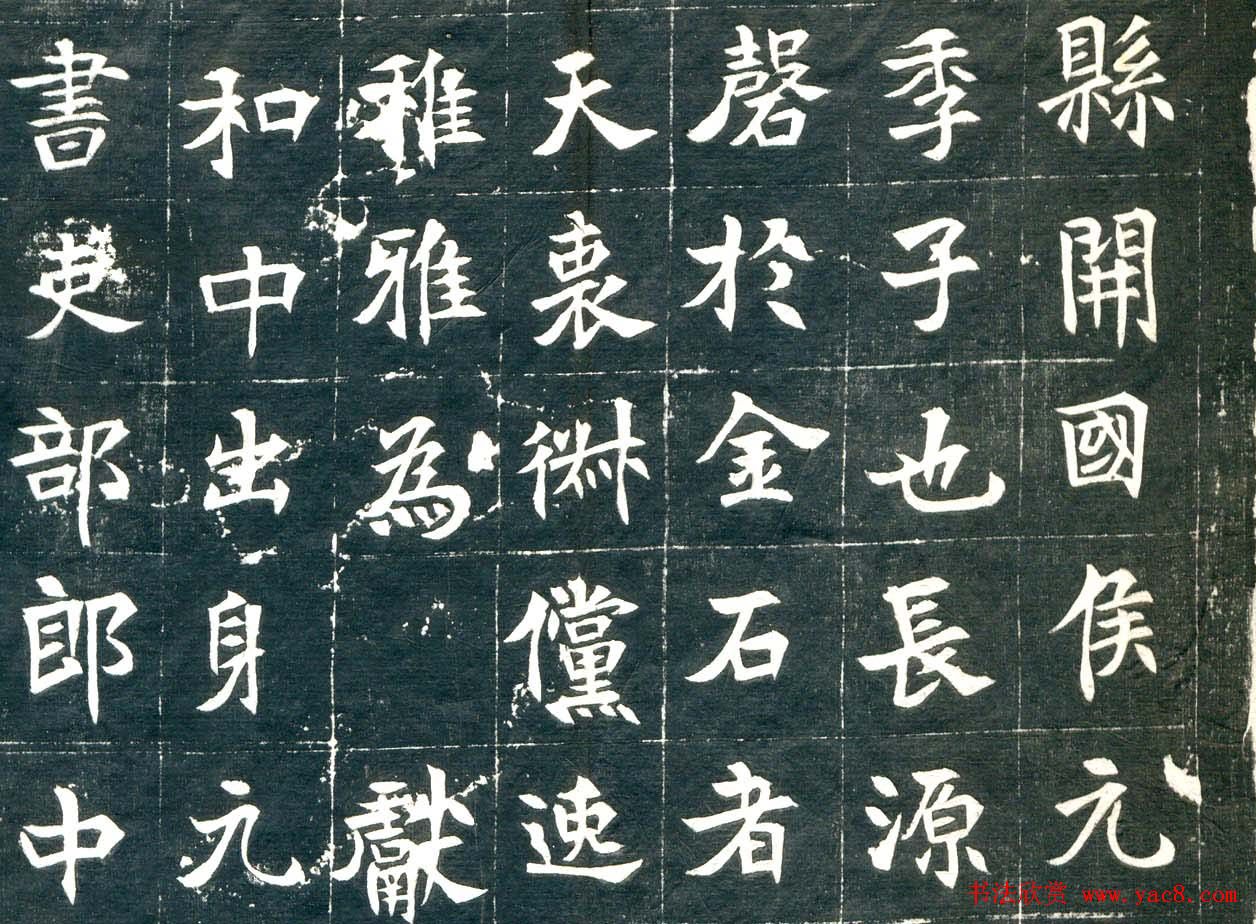 縣開國侯元
季子也長源
磬於金石者
天衷 儻速
稚雅為獻
和中出身元
書吏部郎中
书法欣赏 www.yac8.com